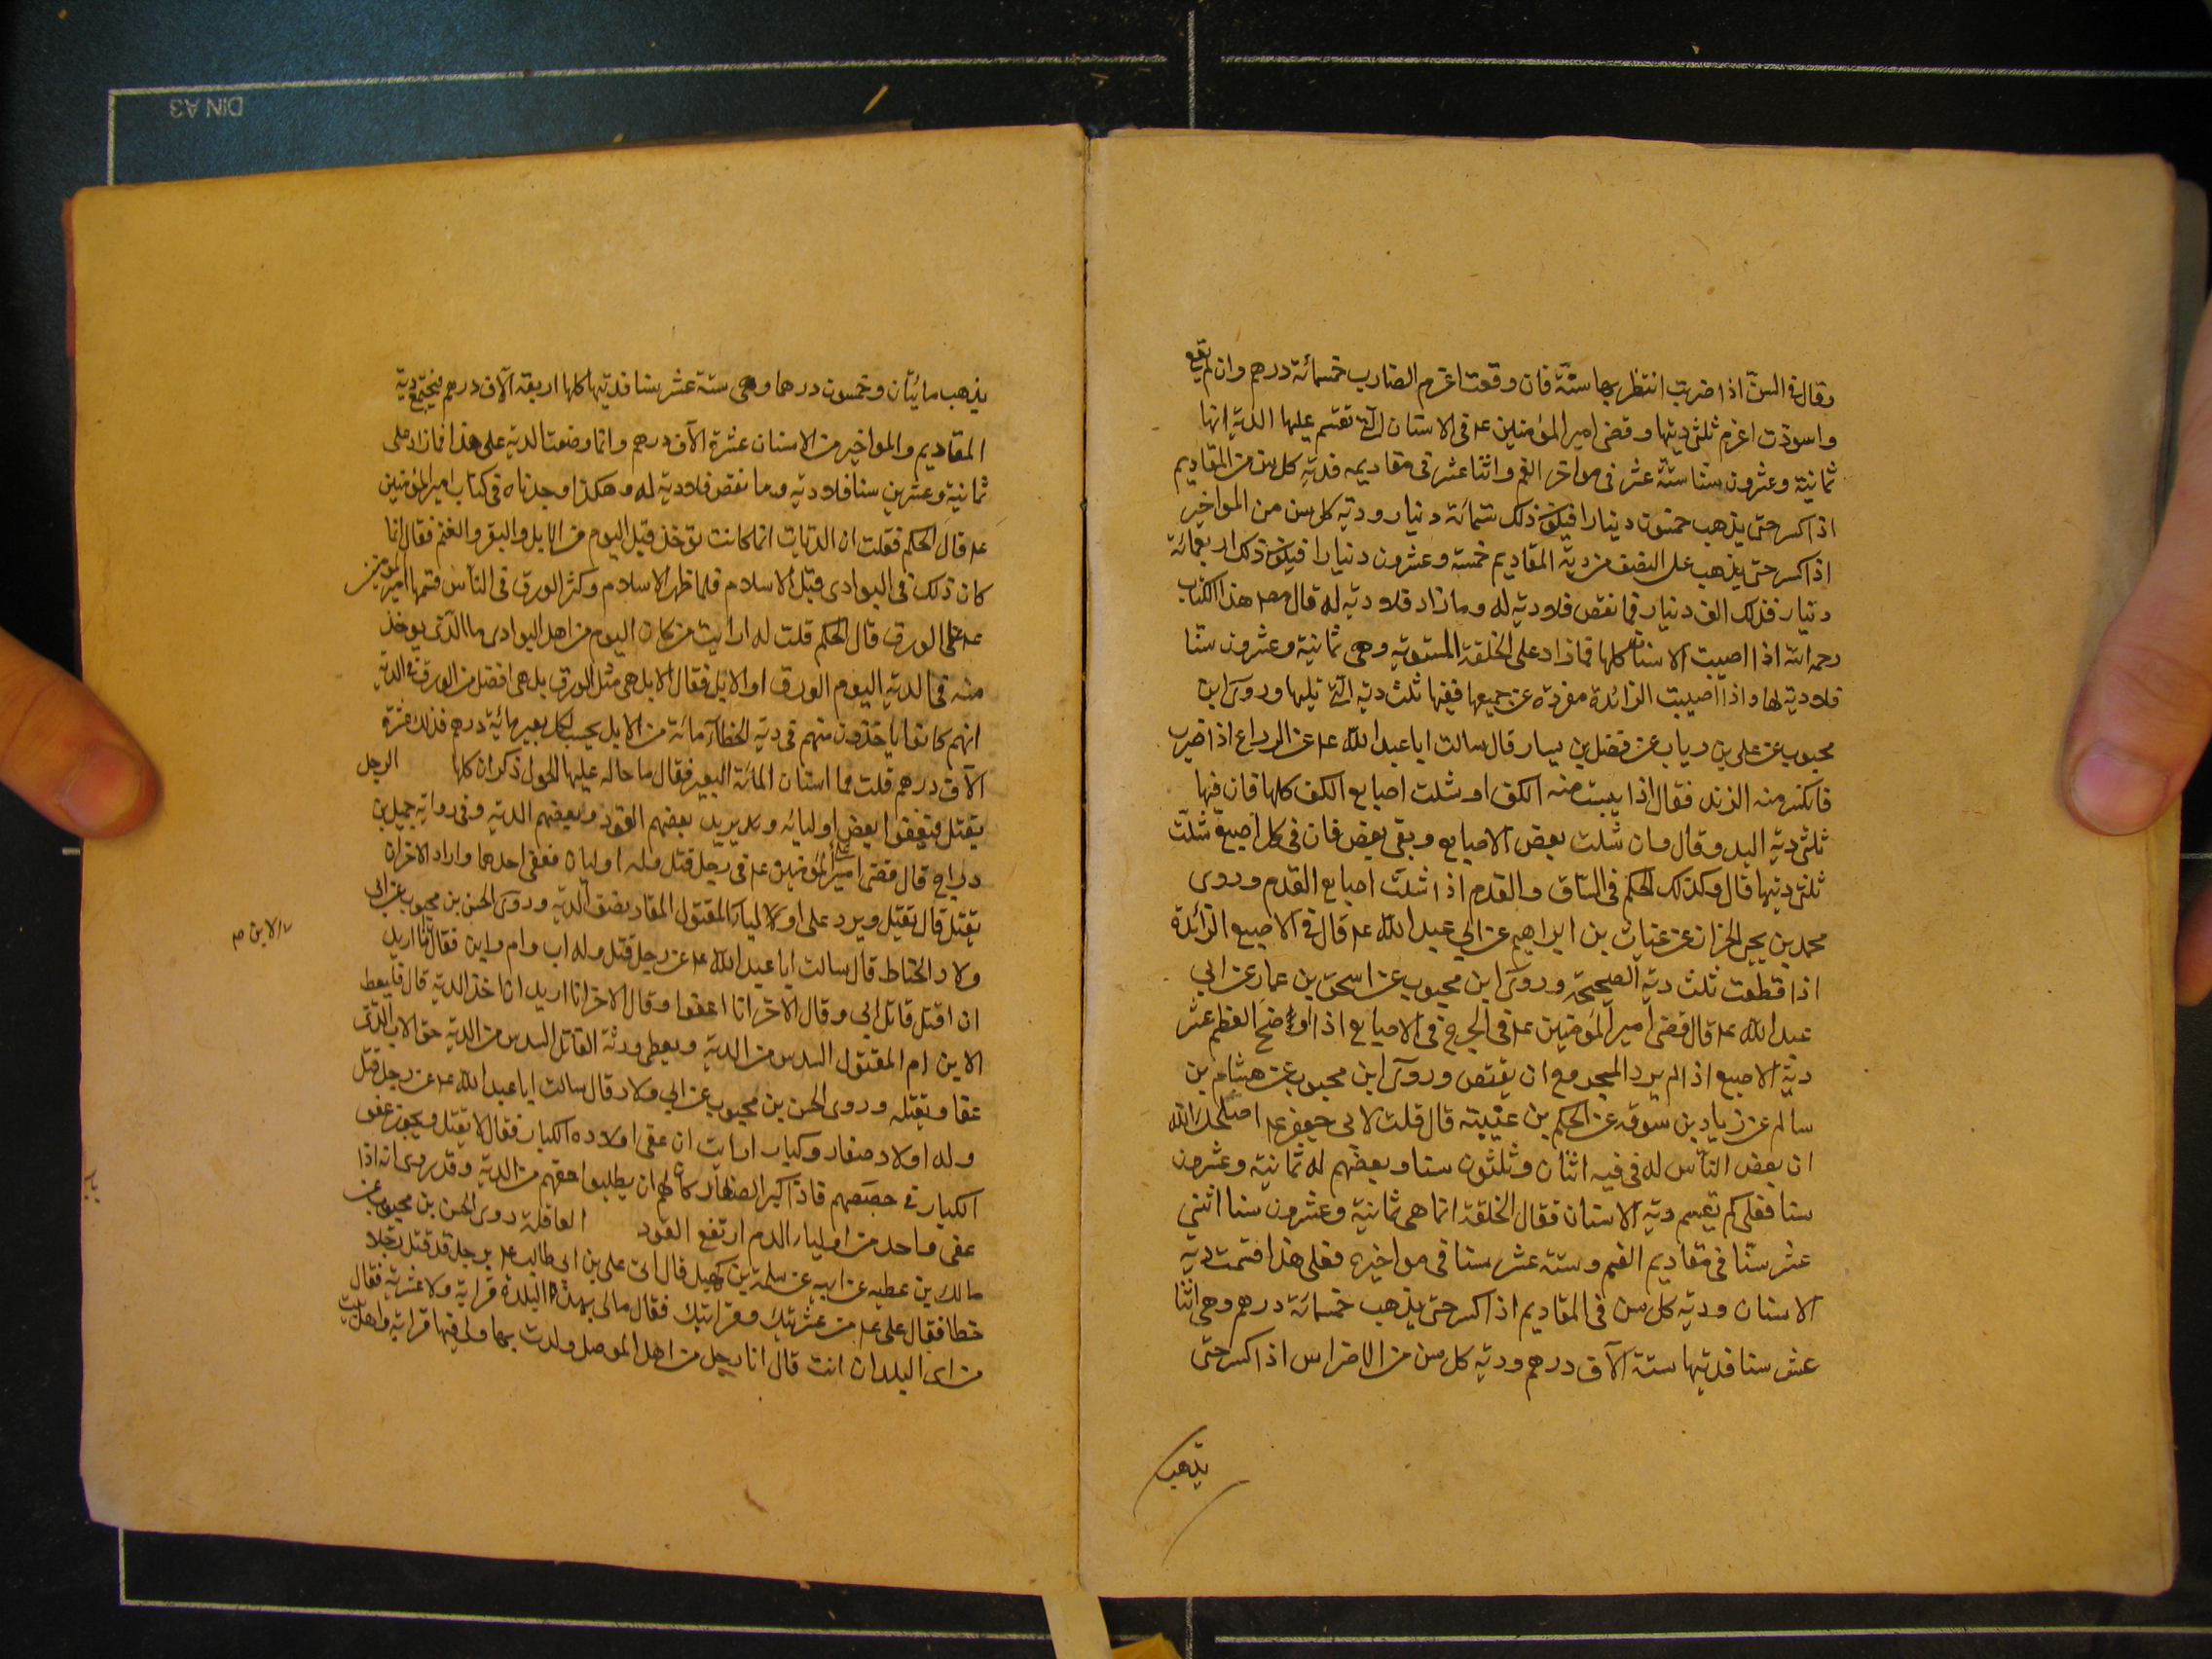 وقال في السن اذا ضربت انتظر بها سنة فان وقعت اغرم الضارب خمسمائة درهم وان لم تقع
واسودت اغرم ثلثي ديتها وقضى امير المؤمنين عه في الاسنان التي تقسم عليها الدية انها
ثمانية وعشرون سنا ستة عشر في مواخر الفم واثنا عشر في مقاديمه فدية كل سن من المقاديم
اذا كسر حتى يذهب خمسون دينارا فيكون ذلك ستمائة دينار ودية كل سن من المواخير
اذا كسر حتى يذهب على النصف من دية المقاديم خمسة وعشرون دينارا فيكون ذلك اربعمائة
دينار فذلك الف دينار فما نقص فلا دية له وما زاد فلا دية له قال مصـ هذا الكتاب
رحمه الله اذا اصيبت الاسنان كلها فما زاد على الخلقة المستوية وهي ثمانية وعشرون سنا
فلا دية لها واذا اصيبت الزائدة مفردة عن جميعها ففيها ثلث دية التي تليها وروى ابن
محبوب عن علي بن رياب عن فضل بن يسار قال سالت ابا عبد الله عه عن الذراع اذا ضرب
فانكسر منه الزند فقال اذا يبست منه الكف او شلت اصابع الكف كلها فان فيها
ثلثي دية اليد وقال وان شلت بعض الاصابع وبقي بعض فان في كل اصبع شلت
ثلثي ديتها قال وكذلك الحكم في الساق والقدم اذا شلت اصابع القدم وروى
محمد بن يحيى الخزاز عن غياث بن ابراهيم عن ابي عبد الله عه قال في الاصبع الزائدة
اذا قطعت ثلث دية الصحيحة وروى ابن محبوب عن اسحق بن عمار عن ابي
عبد الله عه قال قضى امير المؤمنين عه في الجرح في الاصابع اذا اوضح العظم عشر
دية الاصبع اذا لم يرد المجروح ان يقتص وروى ابن محبوب عن هشام بن
سالم عن زياد بن سوقه عن الحكم بن عتيبة قال قلت لابي جعفر عه اصلحك الله
ان بعض الناس له في فيه اثنان وثلثون سنا وبعضهم له ثمانية وعشرون
سنا فعلى كم تقسم دية الاسنان فقال الخلقة انما هي ثمانية وعشرون سنا اثني
عشر سنا في مقاديم الفم وستة عشر سنا في مواخيره فعلى هذا قسمت دية
الاسنان ودية كل سن في المقاديم اذا كسر حتى يذهب خمسمائة درهم وهي اثنا
عشر سنا فديتها ستة الآف درهم ودية كل سن من الاضراس اذا كسر حتى
يذهب
يذهب مائتان وخمسون درهما وهي ستة عشر سنا فديتها كلها اربعة الآف درهم فجميع دية
المقاديم والمواخير من الاسنان عشرة الآف درهم وانما وضعت الدية على هذا فما زاد على
ثمانية وعشرين سنا فلا دية وما نقص فلا دية له وهكذا وجدناه في كتاب امير المؤمنين
عه قال الحكم فقلت ان الديات انما كانت توخذ قبل اليوم من الابل والبقر والغنم فقال انما
كان ذلك في البوادى قبل الاسلام فلما ظهر الاسلام وكثر الورق في الناس قسمها امير المؤمنين
عه على الورق قال الحكم قلت له ارايت من كان اليوم من اهل البوادى ما الذي يوخذ
منه في الدية اليوم الورق او الابل فقال الابل هي مثل الورق بل هي افضل من الورق في الدية
انهم كانوا ياخذون منهم في دية الخطاء مائة من الابل يحسب لكل بعير مائة درهم فذلك عشرة
الآف درهم قلت فما اسنان المائة البعير فقال ما حال عليها الحول ذكران كلها الرجل
يقتل فيعفوا بعض اوليائه ويريد بعضهم القود وبعضهم الدية وفي رواية جميل بن
دراج قال قضى امير المؤمنين عه في رجل قتل وله اوليان فعفى احدهما واراد الاخر ان
يقتل قال يقتل ويرد على اولياء المقتول المقاد نصف الدية وروى الحسن بن محبوب عن ابي
ولاد الحناط قال سالت ابا عبد الله عه عن رجل قتل وله اب وام وابن فقال انا اريد
ان اقتل قاتل ابي وقال الاخر انا اعفوا وقال الاخر انا اريد ان اخذ الدية قال فليعط
الابن ام المقتول السدس من الدية ويعطى ورثة القاتل السدس من الدية حق الاب الذي
عفا ويقتله وروى الحسن بن محبوب عن ابي ولاد قال سالت ابا عبد الله عه عن رجل قتل
وله اولاد صغار وكبار ارايت ان عفى اولاده الكبار فقال لا يقتل ويجوز عفو
الكبار في حصصهم فاذا كبر الصغار كان لهم ان يطلبوا حقهم من الدية وقد روى انه اذا
عفى واحد من اولياء الدم ارتفع القود العاقلة روى الحسن بن محبوب عن
مالك بن عطيه عن ابيه عن سلمة بن كهيل قال اتى علي بن ابي طالب عه برجل قد قتل رجلا
خطا فقال علي عه من عشيرتك وقرابتك فقال مالي بهذه البلدة قرابة ولا عشيرة فقال
من اى البلدان انت قال انا رجل من اهل الموصل ولدت بها ولي فيها قرابة واهل بيت
الابن